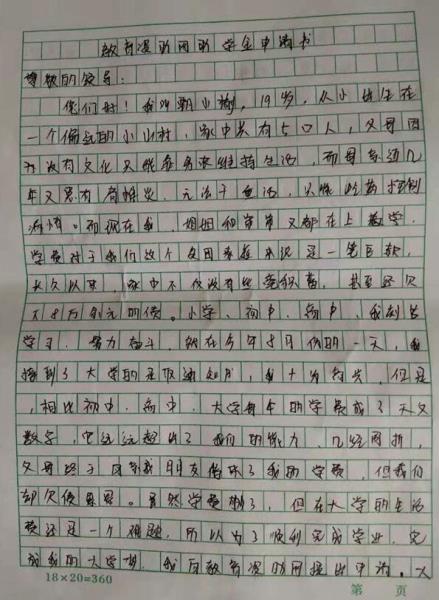 教育资助网助学金申请书
尊敬的领导:
您们好!我叫 小 ,19岁,从小出生在
一个偏远的小山村,家中共有5口人,父母因
为没有文化只能在务农维持生活,而母亲近几
年又患有骨髓炎,无法干重活,只能吃药控制
病情。而现在我、姐姐和弟弟又都在上大学,
学费对于我们这个贫困家庭来说是一笔巨款,
长久以来,家中不仅没有些毫积蓄,甚至还欠
下8万剩元的债。小学、初中、高中,我刻苦
学习,努力奋斗,就在今年8月份的一天,我
接到了大学的录取通知书,我十分高兴,但是
,相比初中、高中,大学每年的学费成了天文
数字,它远远超出了我们的能力,几经周折,
父母终于向亲戚朋友借够了我的学费,但我们
却欠债累累。虽然学费够了,但在大学的生活
费还是一个难题,所以为了顺利完成学业,完
成我的大学梦,我向教育资助网提出申请。大
18×20=360
第 页